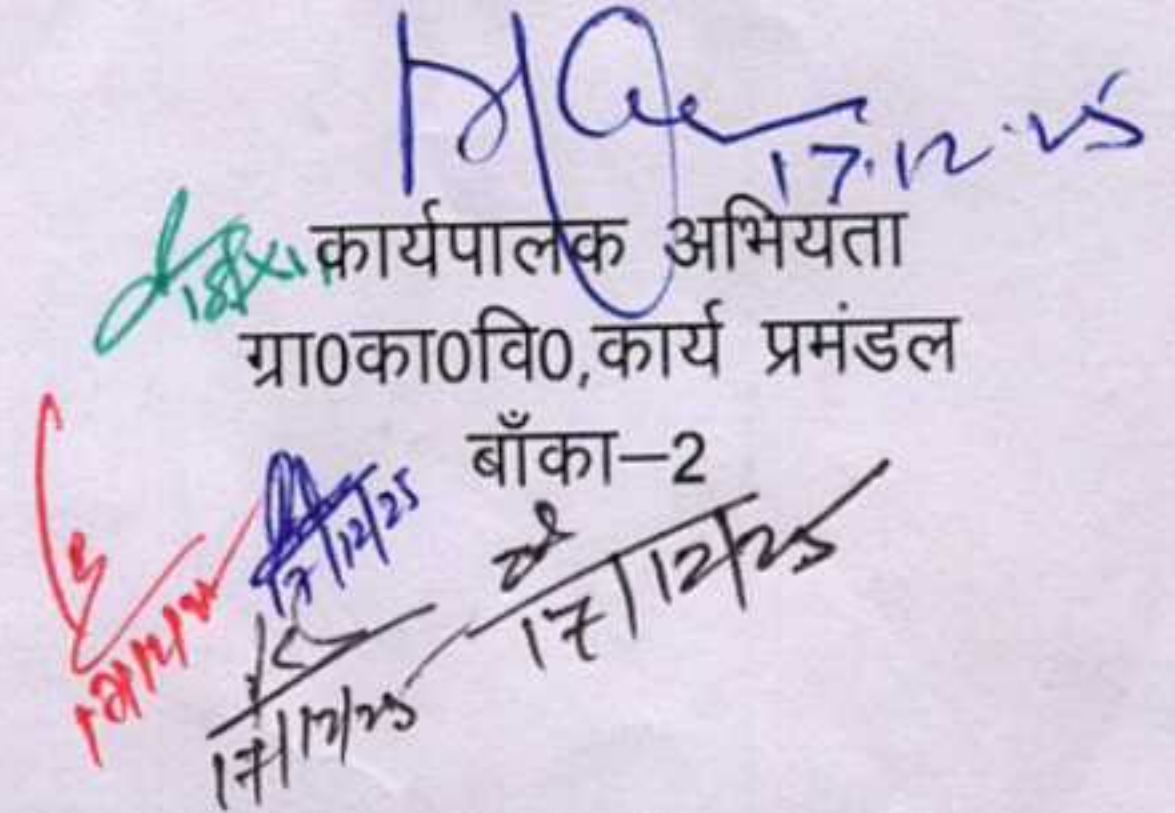 17.12.25
कार्यपालक अभियता
ग्रा0का0वि0,कार्य प्रमंडल
बाँका–2
17/12/25
17/12/25
17/12/25